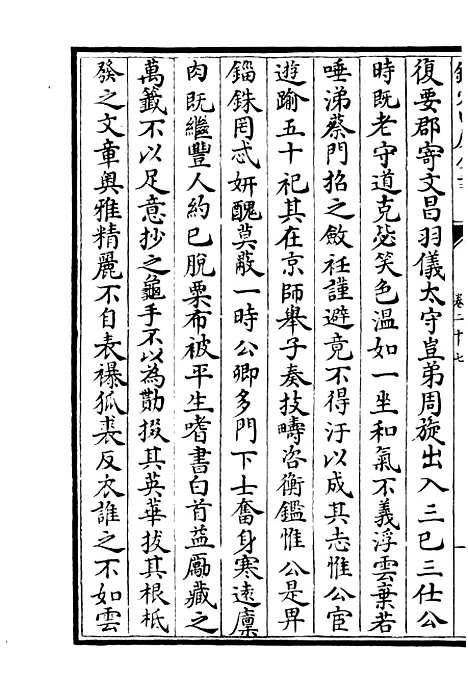 復要郡寄文昌羽儀太守豈弟周旋出入三已三仕公
時既老守道克毖笑色溫如一坐和氣不義浮雲棄若
唾涕蔡門招之斂衽謹避竟不得汙以成其志惟公宦
遊踰五十祀其在京師舉子奏技疇咨衡鑑惟公是畀
錙銖罔忒妍醜莫蔽一時公卿多門下士奮身寒遠廩
肉既繼豐人約己脫粟布被平生嗜書白首益勵藏之
萬籤不以足意抄之龜手不以為勩掇其英華拔其根柢
發之文章奥雅精麗不自表襮狐裘反衣誰之不如雲
卷二十七